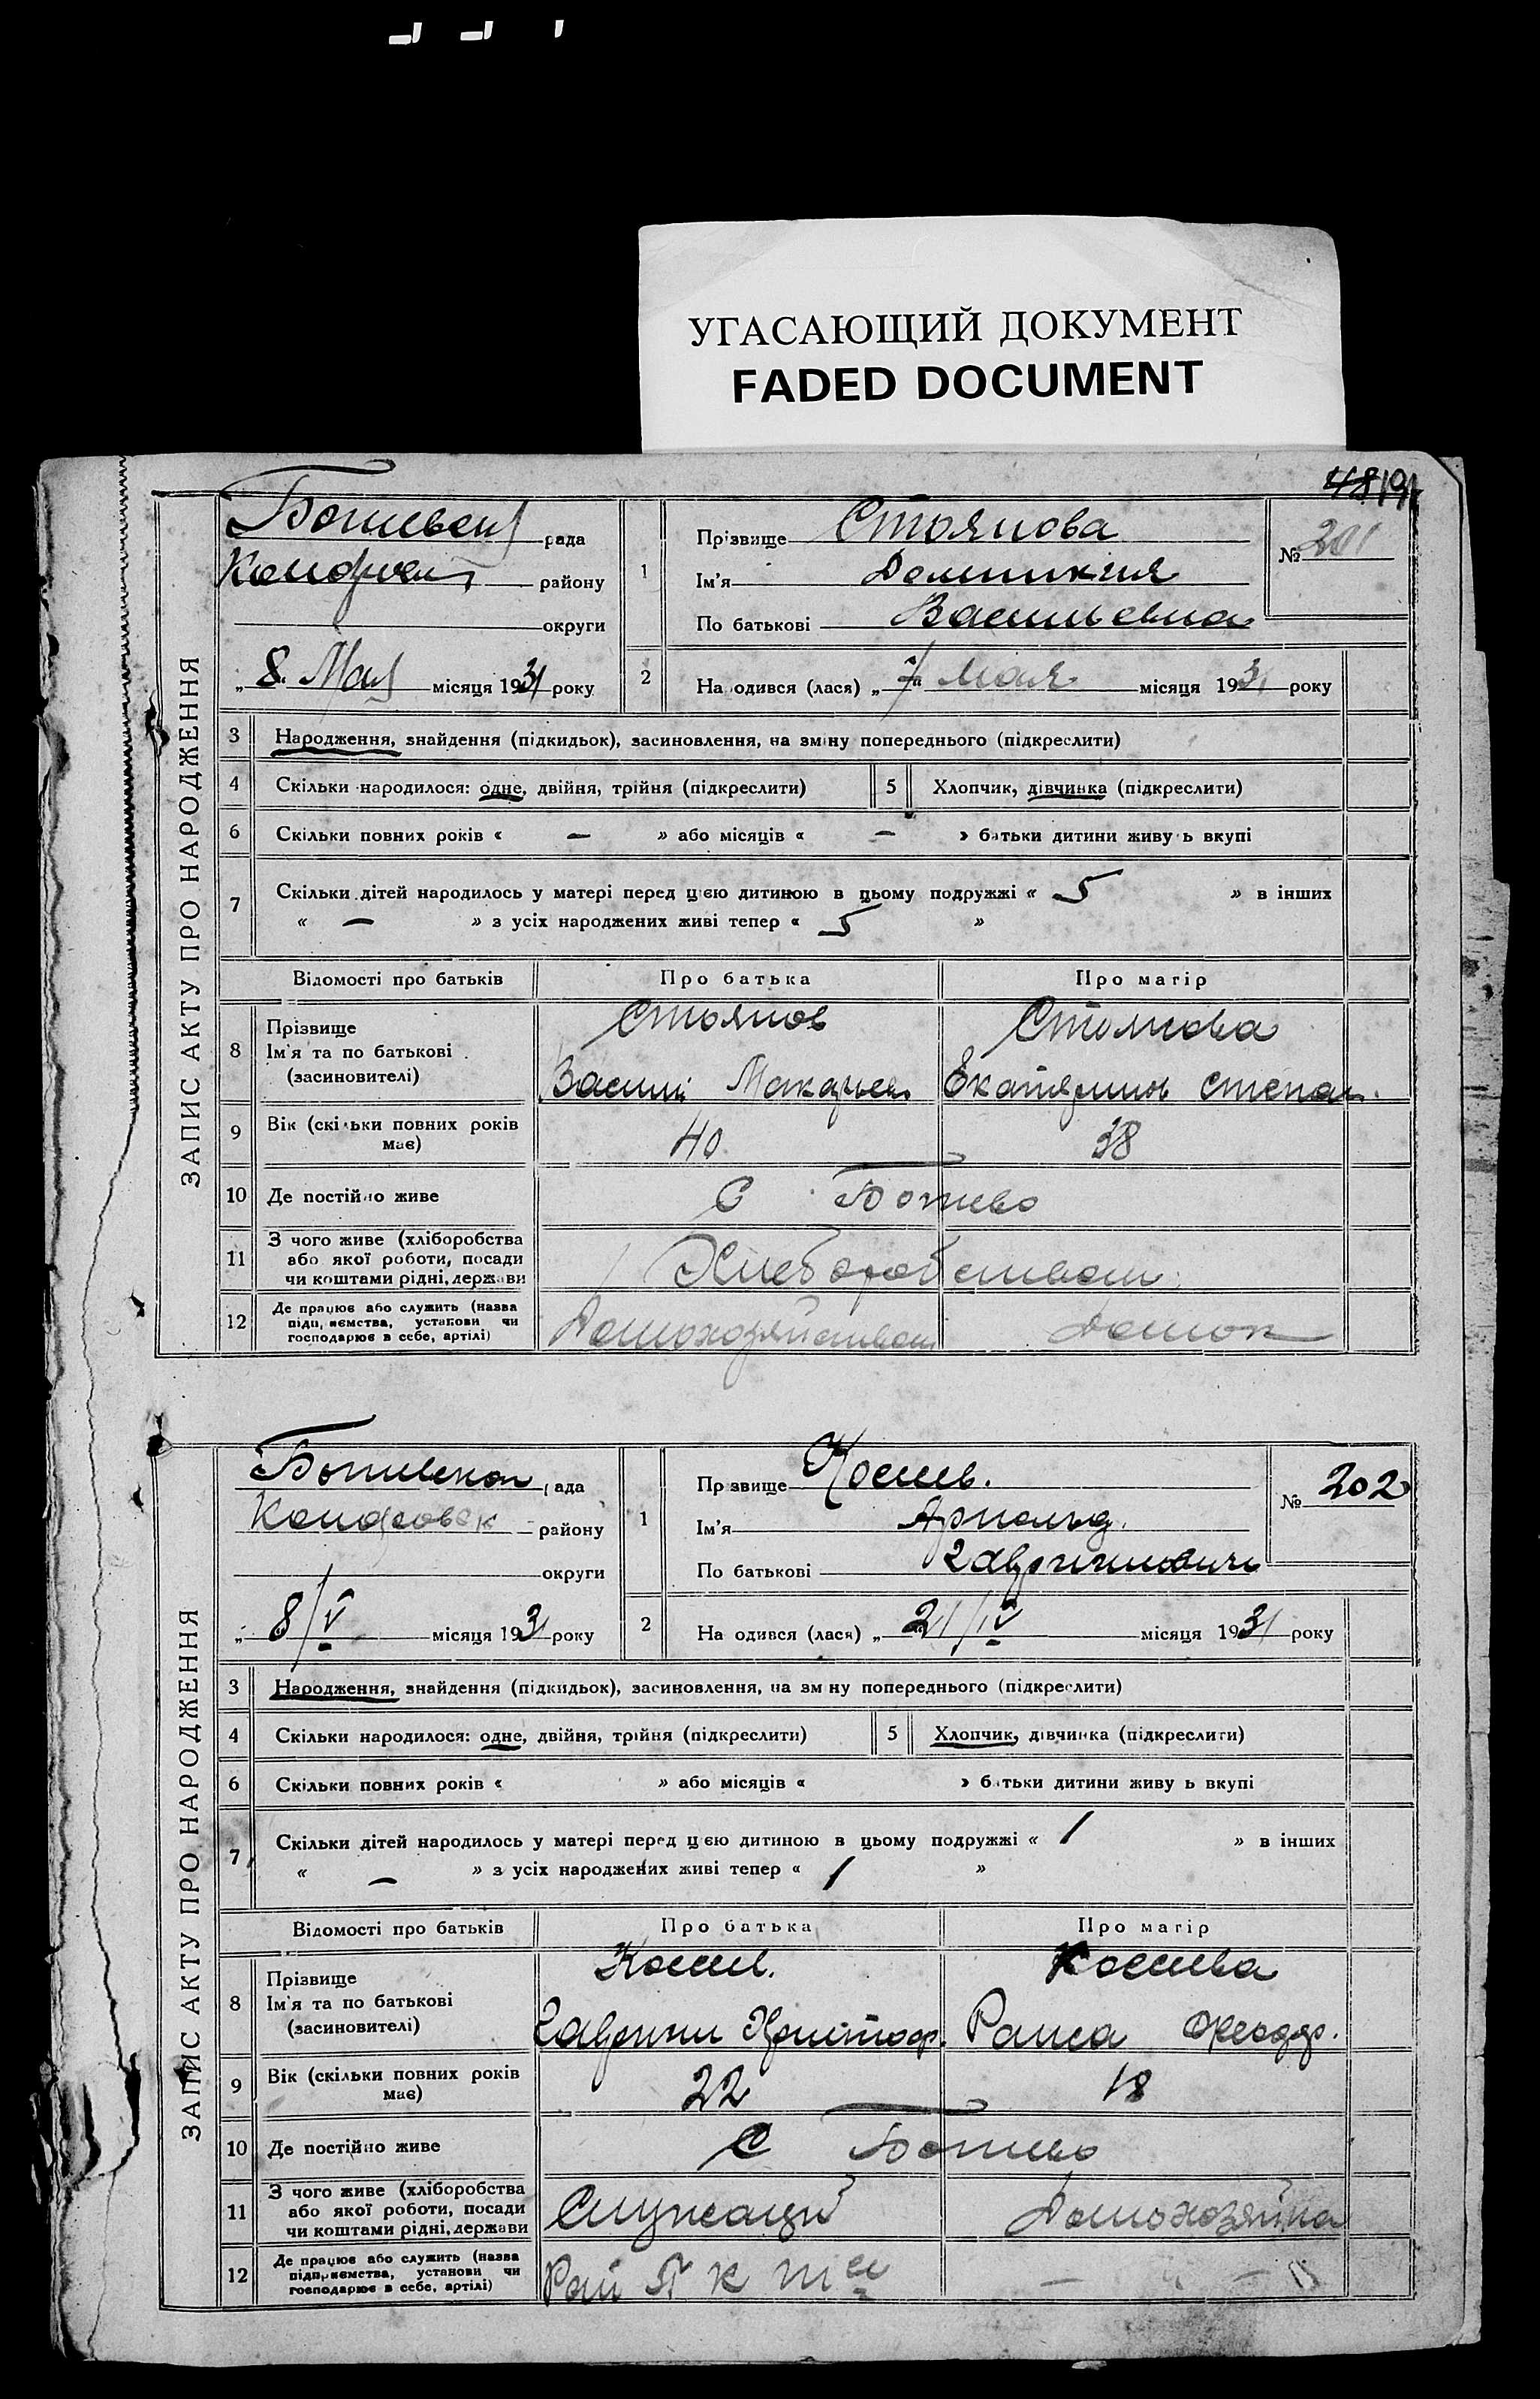 УГАСАЮЩИЙ ДОКУМЕНТ
FADED DOCUMENT
ЗАПИС АКТУ ПРО НАРОДЖЕННЯ
рада
району
округи
„ 8. Мая місяця 1931 року
1 Прізвище Стоянова
Ім'я
По батькові Васильевна
№ 201
2 Народився (лася) „ 7 " мая місяця 1931 року
3 Народження, знайдення (підкидьок), засиновлення, на зміну попереднього (підкреслити)
4 Скільки народилося: одне, двійня, трійня (підкреслити) 5 Хлопчик, дівчинка (підкреслити)
6 Скільки повних років « — » або місяців « — » батьки дитини живуть вкупі
7 Скільки дітей народилось у матері перед цією дитиною в цьому подружжі « 5 » в інших
« — » з усіх народжених живі тепер « 5 »
Відомості про батьків Про батька Про матір
8 Прізвище Стоянов Стоянова
Ім'я та по батькові
(засиновителі) Василий Степан.
9 Вік (скільки повних років має) 40 38
10 Де постійно живе С Ботево
11 З чого живе (хліборобства
або якої роботи, посади
чи коштами рідні, держави Хлеборобством
12 Де працює або служить (назва
підприємства, установи чи
господарює в себе, артілі)
ЗАПИС АКТУ ПРО НАРОДЖЕННЯ
рада
району
округи
„ 8/V місяця 1931 року
1 Прізвище
Ім'я Арнольд.
По батькові
№ 202
2 Народився (лася) „ 21/IV місяця 1931 року
3 Народження, знайдення (підкидьок), засиновлення, на зміну попереднього (підкреслити)
4 Скільки народилося: одне, двійня, трійня (підкреслити) 5 Хлопчик, дівчинка (підкреслити)
6 Скільки повних років « » або місяців « » батьки дитини живуть вкупі
7 Скільки дітей народилось у матері перед цією дитиною в цьому подружжі « 1 » в інших
« — » з усіх народжених живі тепер « 1 »
Відомості про батьків Про батька Про матір
8 Прізвище
Ім'я та по батькові
(засиновителі) Раиса Феодор.
9 Вік (скільки повних років має) 22 18
10 Де постійно живе С Ботево
11 З чого живе (хліборобства
або якої роботи, посади
чи коштами рідні, держави Служащий Домохозяйка
12 Де працює або служить (назва
підприємства, установи чи
господарює в себе, артілі)